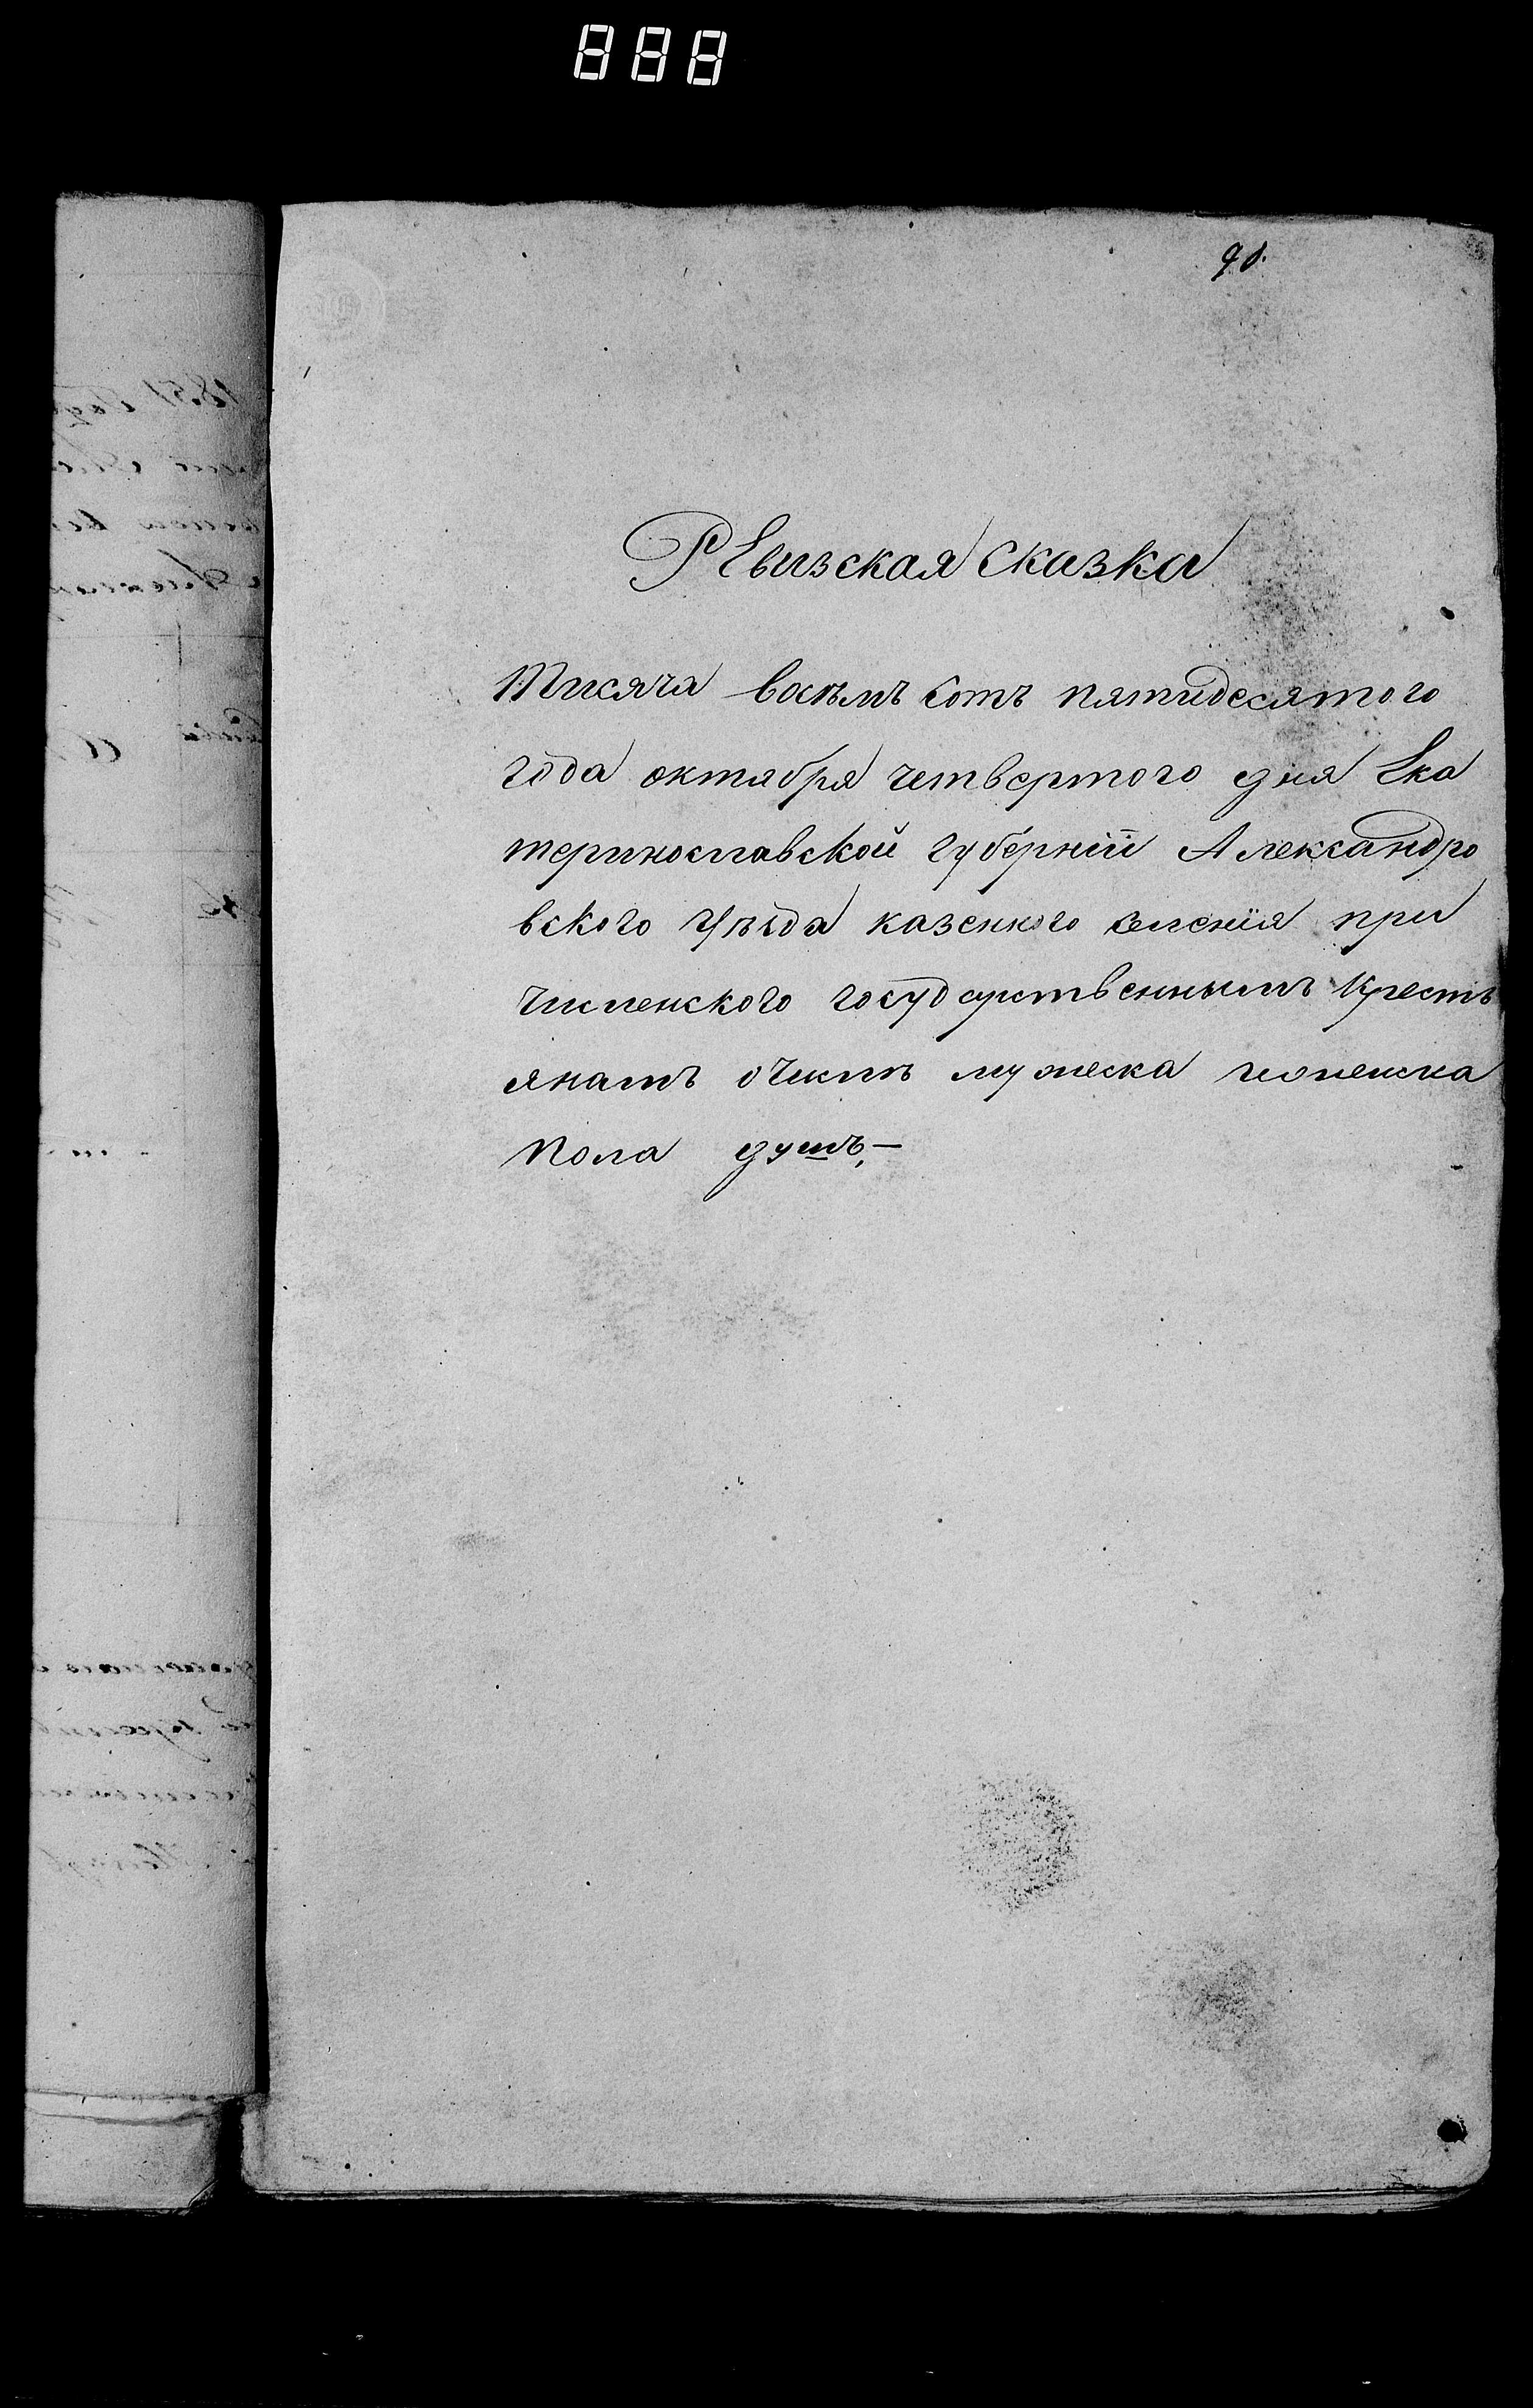 888
Ревизская Сказка
Тисяча восъмъ сотъ пятидесятого
года октября четвертого дня Ека
теринославской губернїи Александро
вского казенного селенїя при
численского государственнымъ крестъ
янамъ мужеска
пола душъ,—